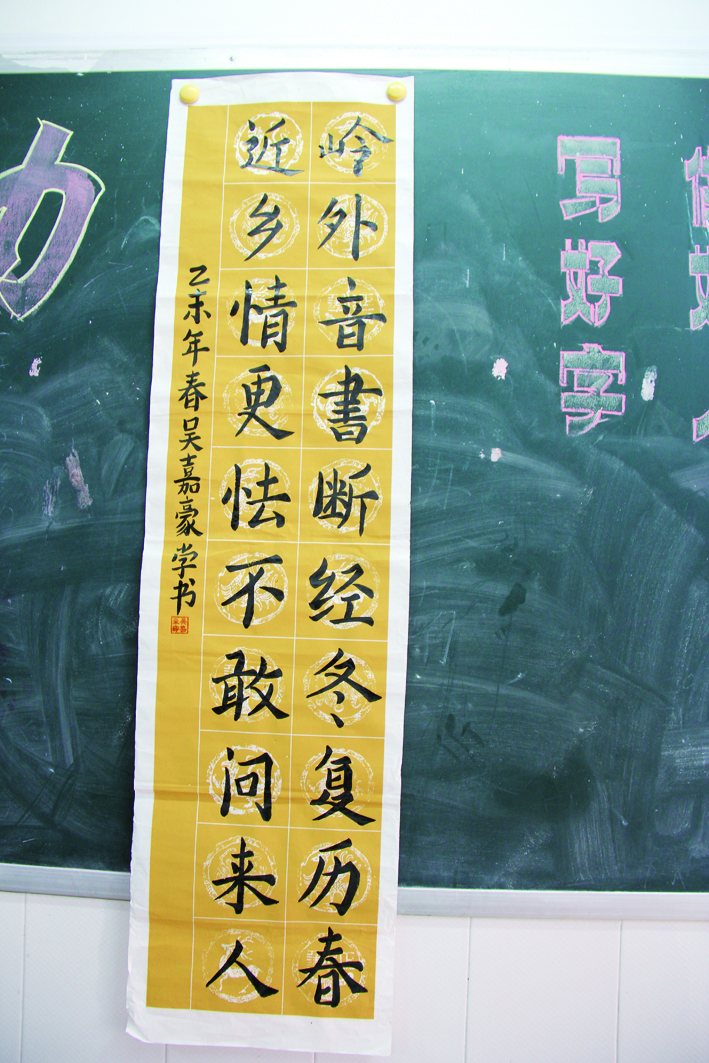 写好字
岭外音書断经冬复历春
近乡情更怯不敢问来人
乙未年春吴嘉豪学书